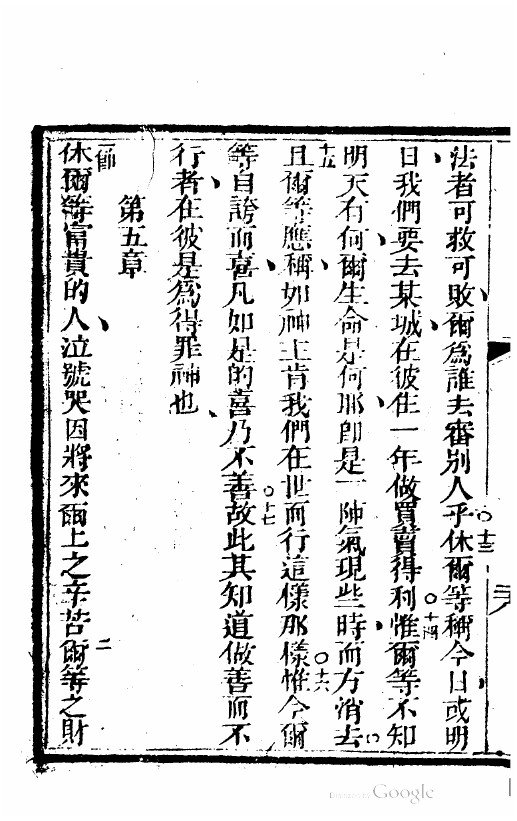 法者可救可敗爾爲誰去審別人乎○十三休爾等稱今日或明
日我們要去某城在彼住一年做買賣得利○十四惟爾等不知
明天有何爾生命是何耶卽是一陣氣現些時而方消去○
十五且爾等應稱如神主肯我們在世而行這樣那樣○十六惟今爾
等自誇而喜凡如是的喜乃不善○十七故此其知道做善而不
行者在彼是爲得罪神也
第五章
一節休爾等富貴的人泣號哭因將來爾上之辛苦二爾等之財
Digitized by Google